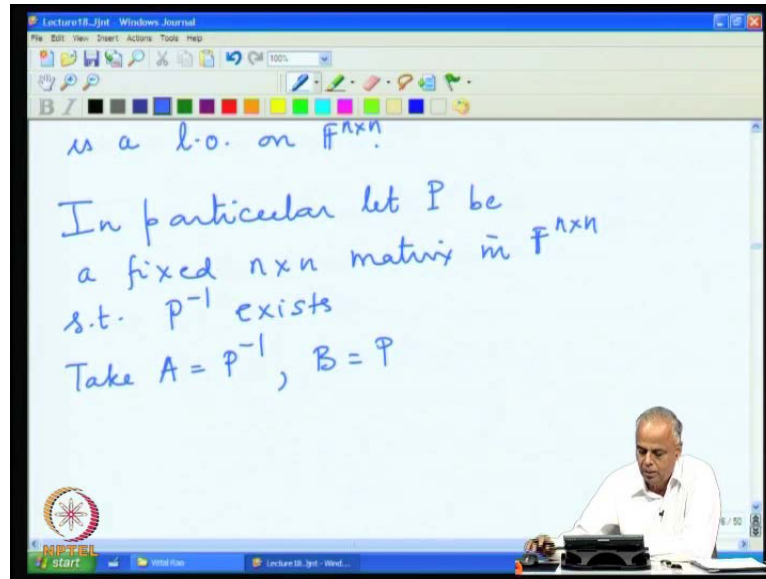 Lecture18.Jnt - Windows Journal
File Edit View Insert Actions Tools Help
100%
B I
is a l.o. on F^{n×n}.
In particular let P be
a fixed n×n matrix in F^{n×n}
s.t. P^{-1} exists
Take A = P^{-1}, B = P
6 / 50
NPTEL
start
Vittal Rao
Lecture18.Jnt - Wind...